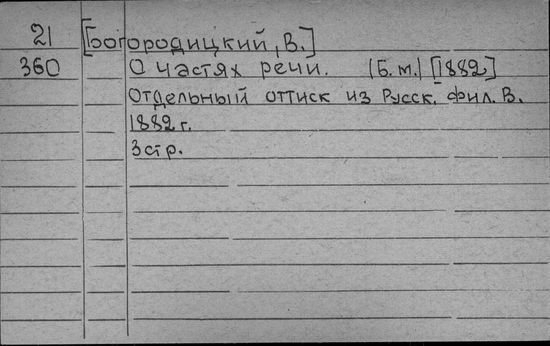 21 [Богородицкий, В.]
360 О частях речи. (Б.м.) [1882]
Отдельный оттиск из Русск. фил. В.
1882 г.
3 стр.